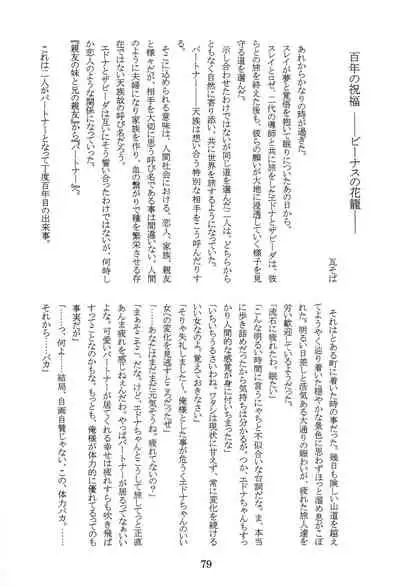 百年の祝福　――ビーナスの花籠――
瓦そば
あれからかなりの時が過ぎた。
スレイが夢と覚悟を抱いて眠りについたあの日から。
スレイとロゼ、二代の導師と共に旅をしたエドナとザビーダは、彼
らとの旅を終えた後も、彼らの願いが大地に浸透していく様子を見
守る道を選んだ。
示し合わせたわけではないが同じ道を選んだ二人は、どちらから
ともなく自然に寄り添い、共に世界を旅するようになっていた。
パートナー――天族は想い合う特別な相手をこう呼んだりす
る。
そこに込められる意味は、人間社会における、恋人、家族、親友
と様々だが、相手を大切に思う呼び名である事は間違いない。人間
のように夫婦になり家族を作り、血の繋がりで種を繁栄させる存
在ではない天族故の呼び名だろう。
エドナとザビーダは互いにそう誓い合ったわけではないが、何時し
か恋人のような関係になっていた。
『親友の妹と兄の親友』から『パートナー』へ。
これは二人がパートナーとなって丁度百年目の出来事。
それはとある町に着いた時の事だった。幾日も険しい山道を越え
てようやく辿り着いた穏やかな景色に思わずほっと溜め息がこぼ
れた。明るい日差しと活気ある大通りの賑わいが、疲れた旅人達を
労い歓迎しているようだった。
「流石に疲れたわ。眠たい」
「こんな明るい時間に言うにゃちと不似合いな台詞だな。ま、本当
に歩き詰めだったから気持ちは分かるが。つか、エドナちゃんもし
かり人間的な感覚が身に付いちまったな」
「いちいちうるさいわね。ワタシは現状に甘えず、常に変化を続ける
いい女なのよ。覚えておきなさい」
「そりゃ失礼しました。しまった、俺様とした事が危うくエドナちゃんのいい
女への変化を見逃すところだったぜ」
「……あなたはまだまだ元気そうね。疲れてないの？」
「まぁそこそこ、だな。けど、エドナちゃんとこうして旅してっと正直
あんま疲れを感じねぇんだわ。やっぱパートナーが居るってなぁいい
よな。可愛いパートナーが居てくれる幸せは疲れすらも吹き飛ば
すってことなのかもな。もっとも、俺様が体力的に優れてるってのも
事実だが」
「……っ、何よ……結局、自画自賛じゃない。この、体力バカ。
それから……バカ」
79